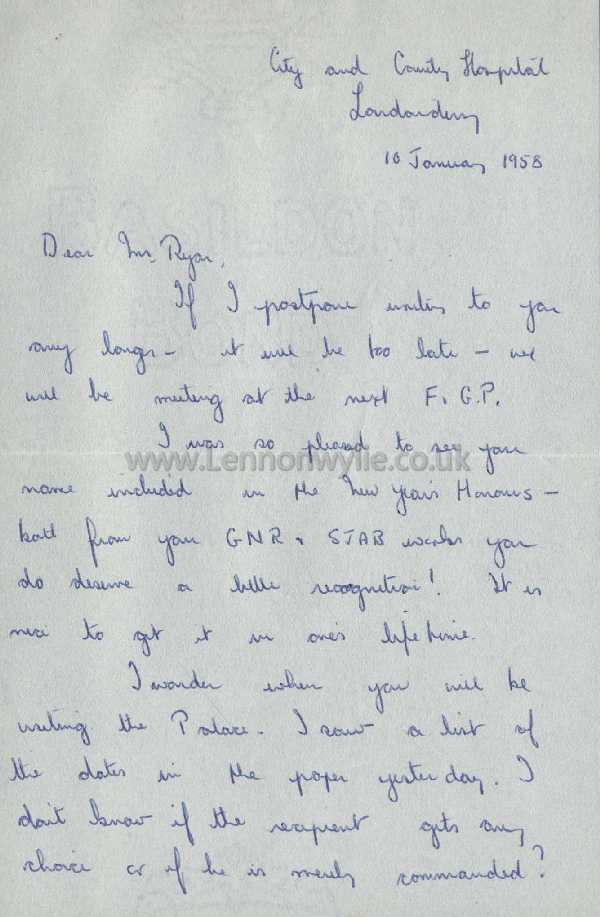 City and County Hospital
Londonderry
10 January 1958
Dear Mr. Ryan,
If I postpone writing to you
any longer - it will be too late - we
will be meeting at the next F.G.P.
I was so pleased to see your
www.Lennonwylie.co.uk
name included in the New Year's Honours -
both from your GNR & STAB works you
do deserve a little recognition! It is
nice to get it in one's life time.
I wonder when you will be
visiting the Palace. I saw a list of
the dates in the paper yesterday. I
don't know if the recipient gets any
choice or if he is merely commanded?